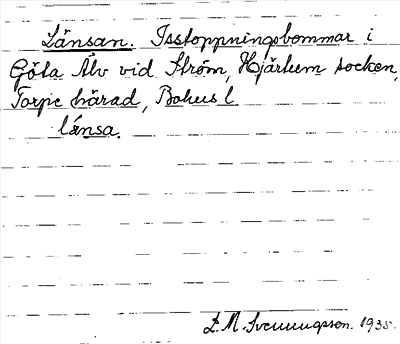 Länsan. Isstoppningsbommar i
Göta Älv vid Ström, Hjärtum socken,
Torpe härad, Bohus l.
länsa.
D. M. Svenungsson. 1935.